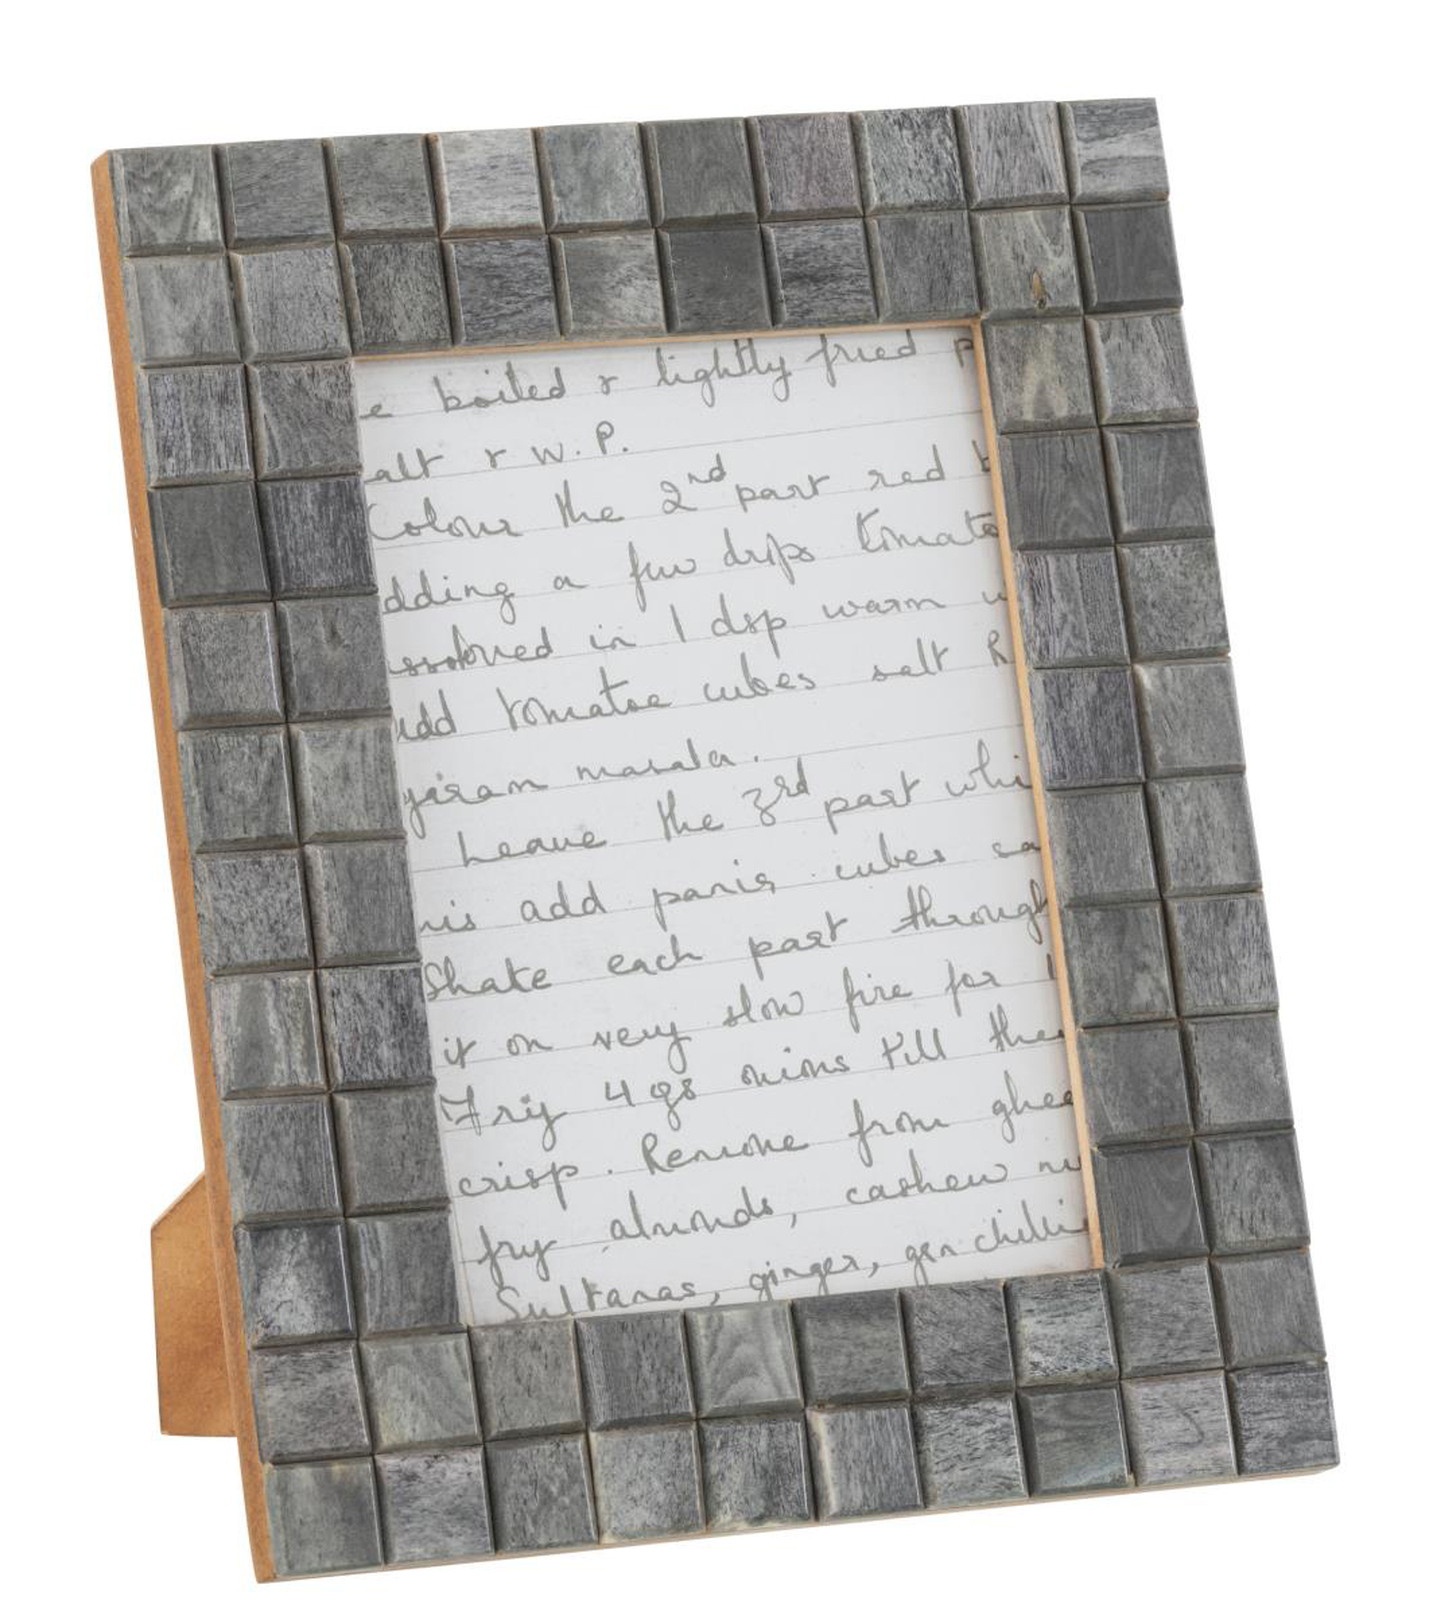 e boiled & lightly fried p
alt & W.P.
Colour the 2nd part red b
dding a few drops tomato
ssolved in 1 dsp warm w
add tomatoe cubes salt R
garam masala.
Leave the 3rd part whi
his add panir cubes sa
Shake each part through
it on very slow fire for 1
Fry 4 gs onions till they
crisp. Remove from ghee
fry almonds, cashew nu
Sultanas, ginger, grn chilli